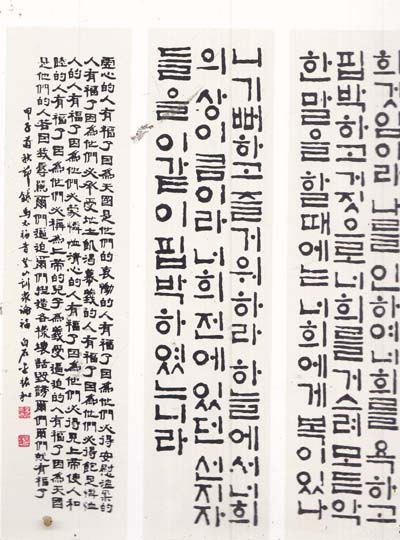 희것임이라나를인하여너희를욕하고
핍박하고거짓으로너희를거스려모든악
한말을할때에는너희에게복이있나
니기뻐하고즐거워하라하늘에서너희
의상이큼이라너희전에있던선지자
들을이같이핍박하였느니라
虛心的人有福了因為天國是他們的哀慟的人有福了因為他們必得安慰溫柔的
人有福了因為他們必承受地土飢渴慕義的人有福了因為他們必得飽足憐恤
人的人有福了因為他們必蒙憐恤清心的人有福了因為他們必得見上帝使人和
睦的人有福了因為他們必稱為上帝的兒子為義受逼迫的人有福了因為天國
是他們的人若因我辱罵爾們逼迫爾們捏造各樣壞話毀謗爾們爾們就有福了
甲子菊秋節錄馬太福音登山訓衆論福 白石